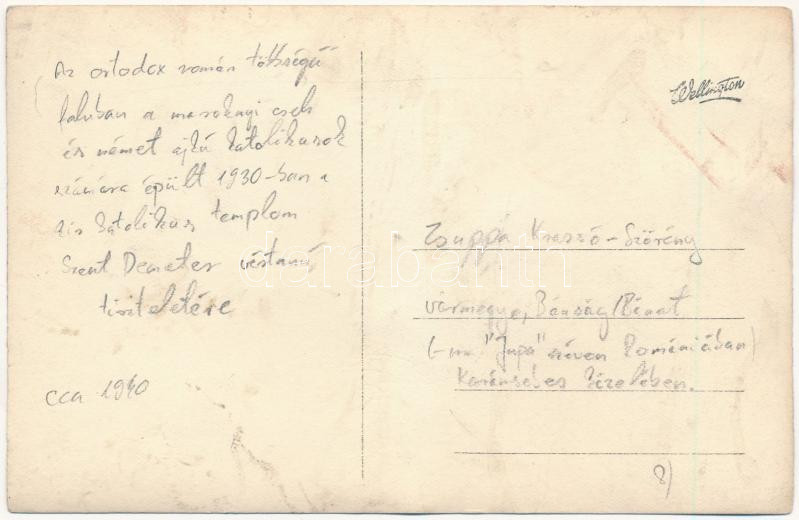 Az ortodox román többségű
faluban a maroknyi cseh
és német ajkú katolikusok
számára épült 1930-ban a
kis katolikus templom
Szent Demeter vértanú
tiszteletére
cca 1940
Wellington
Zsuppa Krassó-Szörény
vármegye, Bánság/Banat
(-ma "Jupa" néven Romániában)
Karánsebes közelében.
8)
darabanth